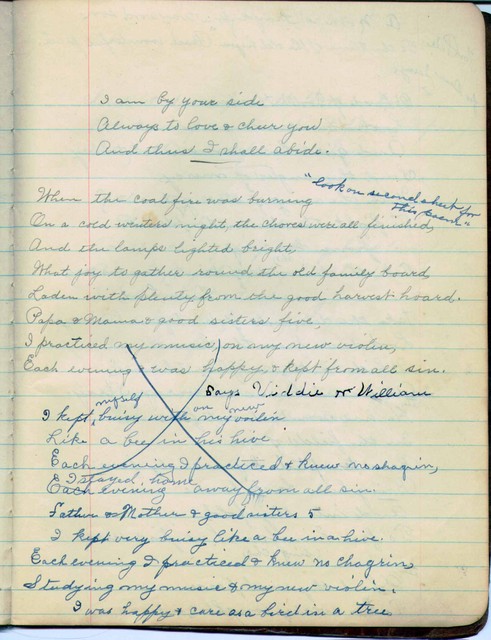 I am by your side
Always to love & cheer you
And thus I shall abide.
When the coal fire was burning
"Look on second sheet for
this poem"
On a cold winters night, the chores were all finished,
And the lamps lighted bright,
What joy to gather round the old family board,
Laden with plenty from the good harvest hoard.
Papa & Mama & good sisters five,
I practiced my music, on my new violin,
Each evening & was happy & kept from all sin.
Says Viddie or William
I kept myself busy with on my new voilin
Like a bee in his hive
Each evening I practiced & knew no shagrin,
I stayed home
Each evening away from all sin.
Father & Mother & good sisters 5
I kept very buisy like a bee in a hive.
Each evening I practiced & knew no chagrin,
Studying my music & my new violin.
I was happy & care as a bird in a tree